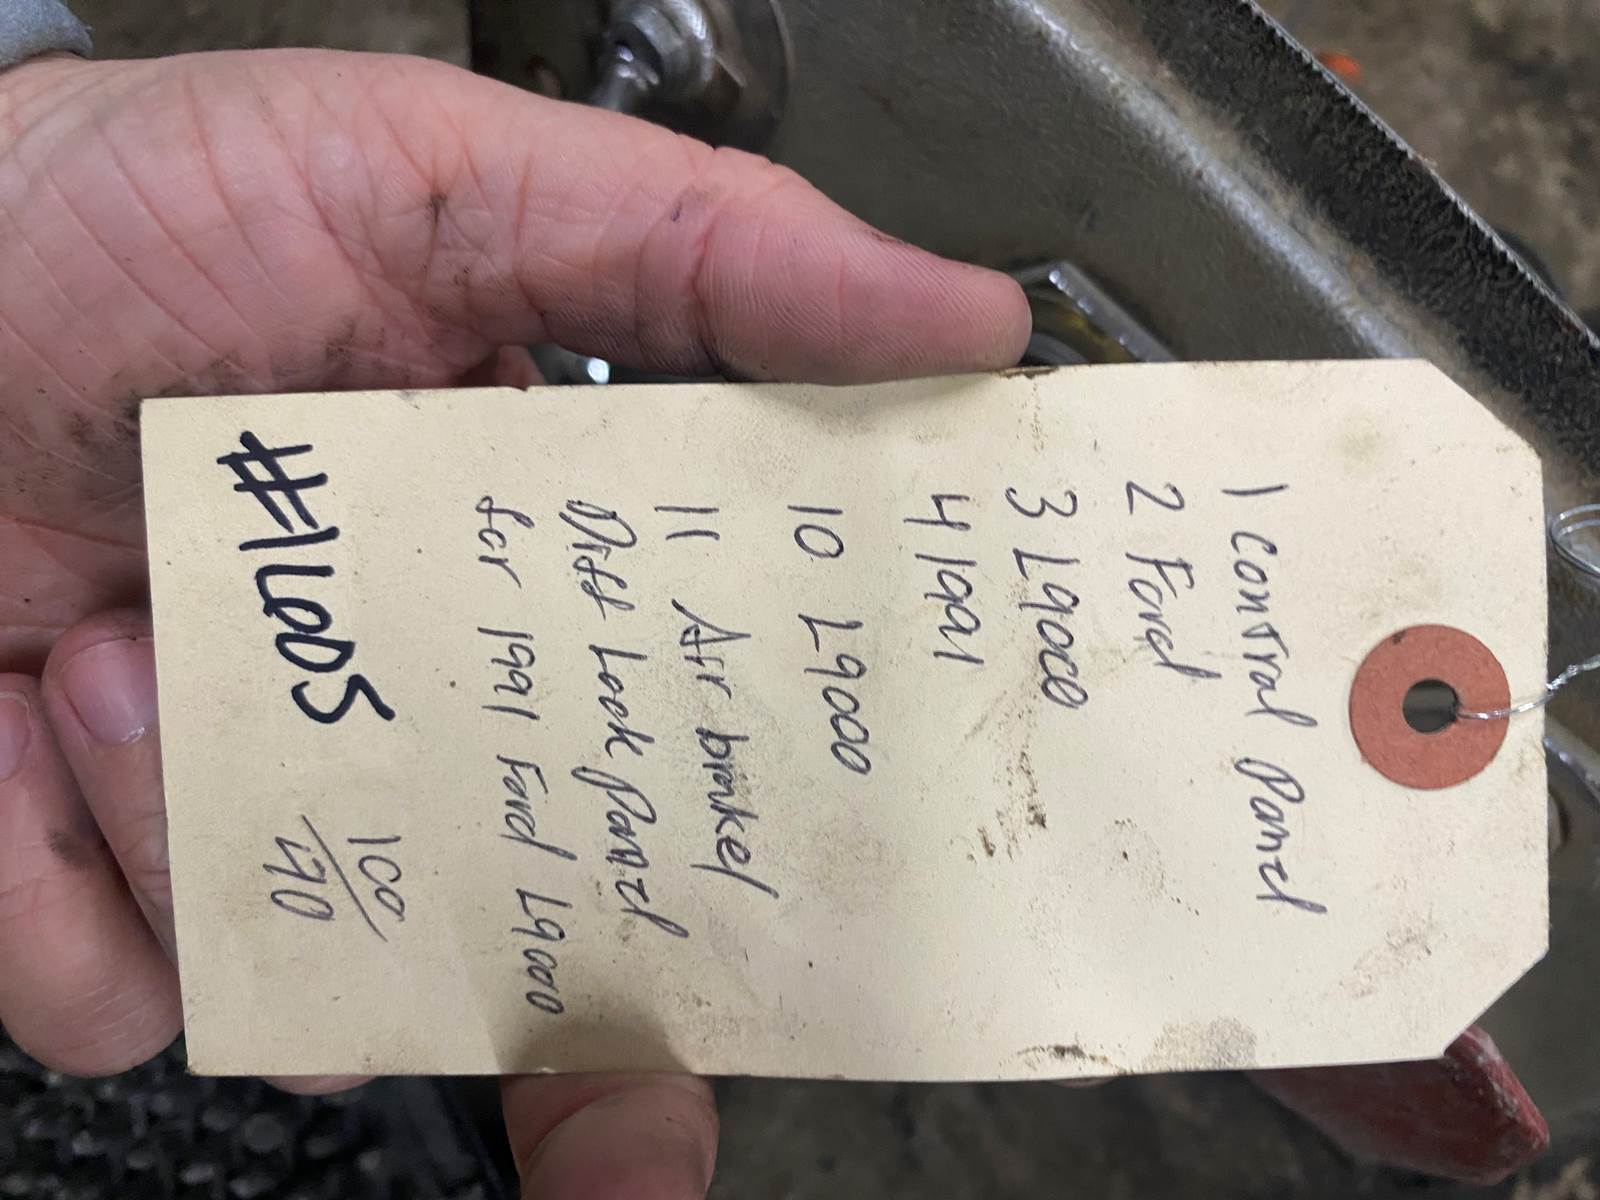 1 Control Panel
2 Ford
3 L9000
4 1991
10 L9000
11 Air brake/
Diff Lock Panel
for 1991 Ford L9000
100/
#1L005 190